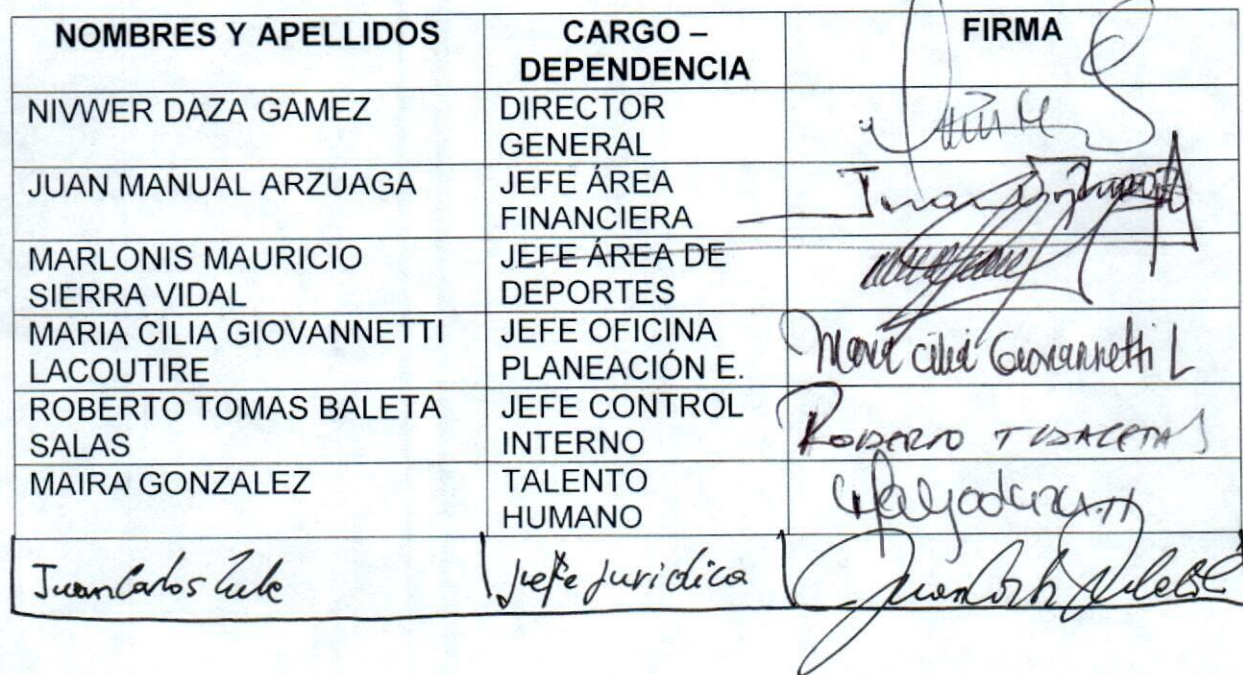 NOMBRES Y APELLIDOS
CARGO –
DEPENDENCIA
FIRMA
NIVWER DAZA GAMEZ
DIRECTOR
GENERAL
JUAN MANUAL ARZUAGA
JEFE ÁREA
FINANCIERA
MARLONIS MAURICIO
SIERRA VIDAL
JEFE ÁREA DE
DEPORTES
MARIA CILIA GIOVANNETTI
LACOUTIRE
JEFE OFICINA
PLANEACIÓN E.
Maria cilia Giovannetti L
ROBERTO TOMAS BALETA
SALAS
JEFE CONTROL
INTERNO
ROBERTO T BALETA S
MAIRA GONZALEZ
TALENTO
HUMANO
Juan Carlos
Jefe Juridica